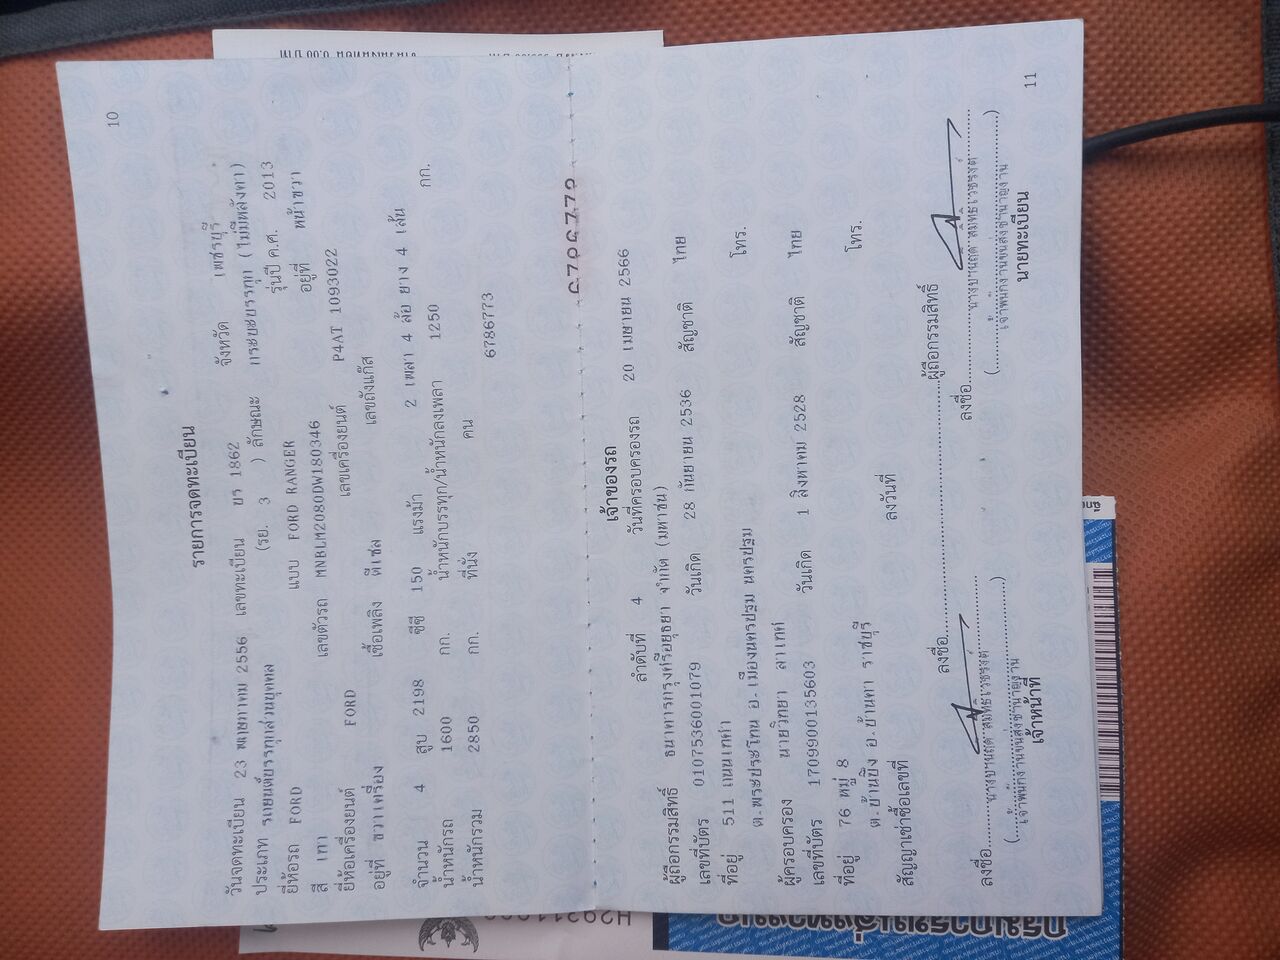 10
รายการจดทะเบียน
วันจดทะเบียน 23 พฤษภาคม 2556 เลขทะเบียน บร 1862 จังหวัด เพชรบุรี
ประเภท รถยนต์บรรทุกส่วนบุคคล (รย. 3 ) ลักษณะ กระบะบรรทุก (ไม่มีหลังคา)
ยี่ห้อรถ FORD แบบ FORD RANGER รุ่นปี ค.ศ. 2013
สี เทา เลขตัวรถ MNBLM2080DW180346 อยู่ที่ หน้าขวา
ยี่ห้อเครื่องยนต์ FORD เลขเครื่องยนต์ P4AT 1093022
อยู่ที่ ขวาเครื่อง เชื้อเพลิง ดีเซล เลขถังแก๊ส
จำนวน 4 สูบ 2198 ซีซี 150 แรงม้า 2 เพลา 4 ล้อ ยาง 4 เส้น
น้ำหนักรถ 1600 กก. น้ำหนักบรรทุก/น้ำหนักลงเพลา 1250 กก.
น้ำหนักรวม 2850 กก. ที่นั่ง คน
6786773
เจ้าของรถ
ลำดับที่ 4 วันที่ครอบครองรถ 20 เมษายน 2566
ผู้ถือกรรมสิทธิ์ ธนาคารกรุงศรีอยุธยา จำกัด (มหาชน)
เลขที่บัตร 0107536001079 วันเกิด 28 กันยายน 2536 สัญชาติ ไทย
ที่อยู่ 511 ถนนเทศา โทร.
ต.พระประโทน อ.เมืองนครปฐม นครปฐม
ผู้ครอบครอง นายวิทยา ลาเทศ
เลขที่บัตร 1709900135603 วันเกิด 1 สิงหาคม 2528 สัญชาติ ไทย
ที่อยู่ 76 หมู่ 8 โทร.
ต.บ้านบึง อ.บ้านคา ราชบุรี
สัญญาเช่าซื้อเลขที่ ลงวันที่
ลงชื่อ ผู้ถือกรรมสิทธิ์
ลงชื่อ ลงชื่อ
(เจ้าพนักงานขนส่งชำนาญงาน) (เจ้าพนักงานขนส่งชำนาญงาน)
เจ้าหน้าที่ นายทะเบียน
11